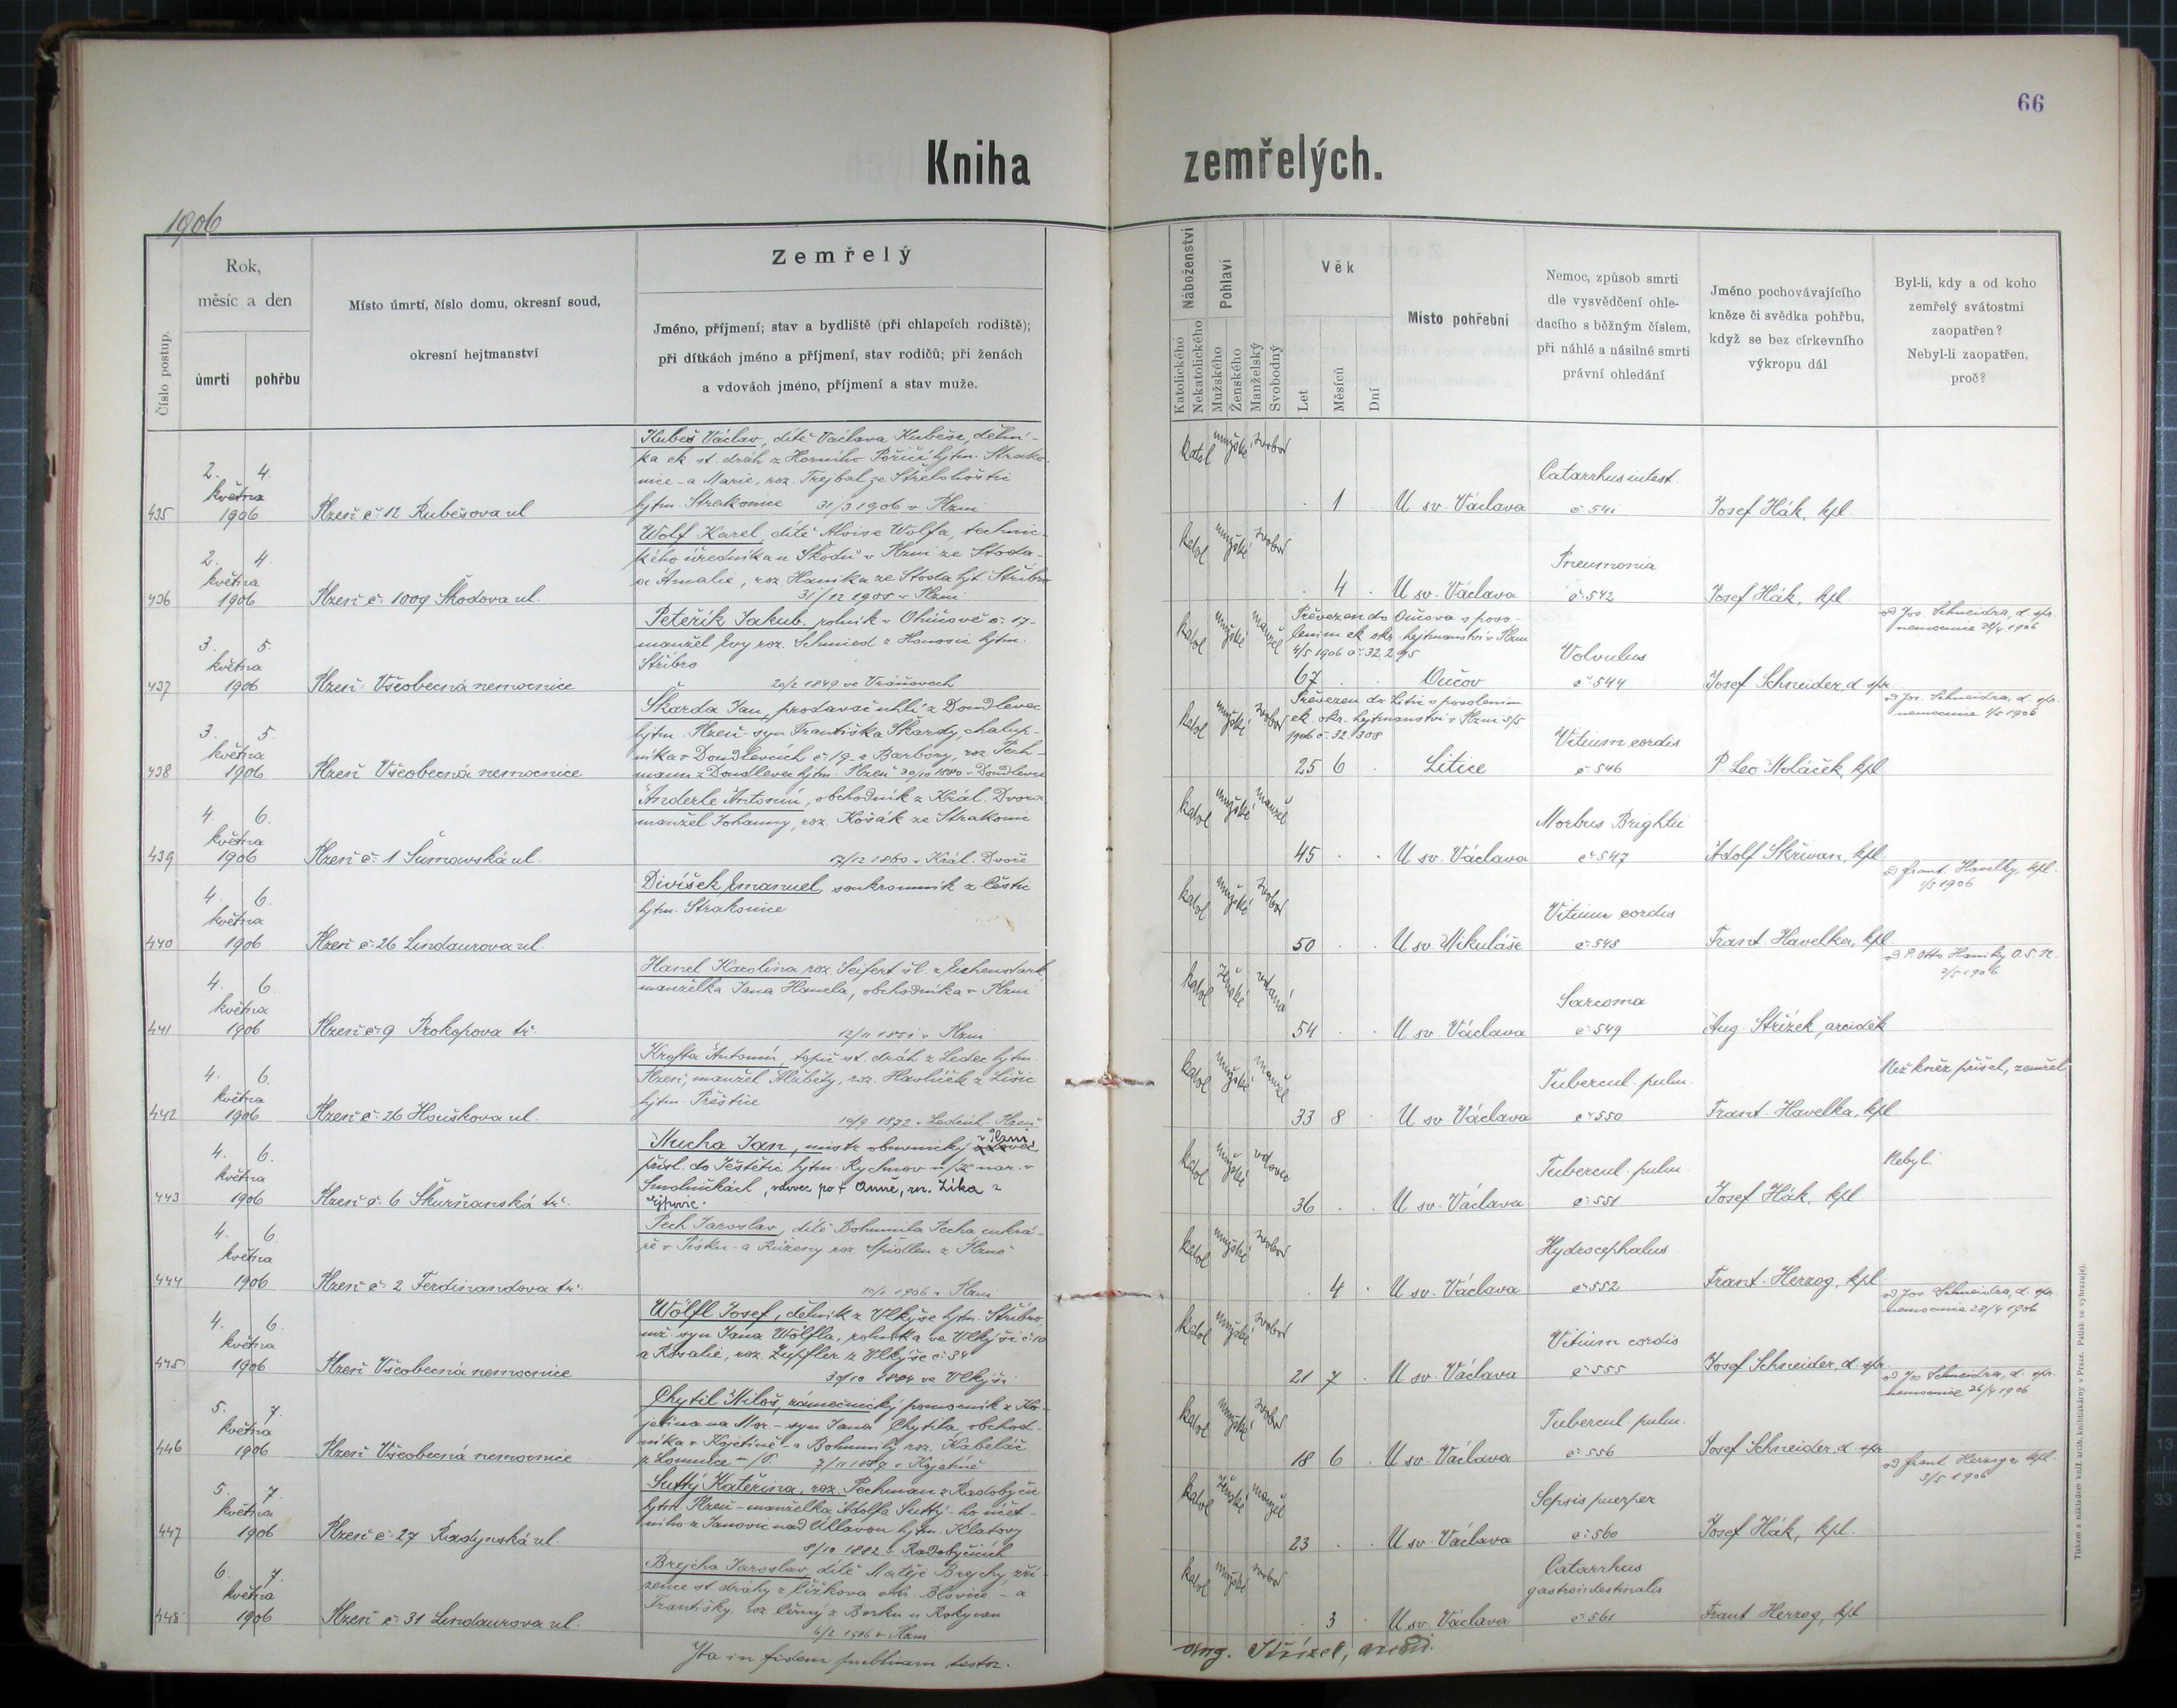 66
Kniha zemřelých.
1906
Číslo postup.
Rok,
měsíc a den
úmrtí
pohřbu
Místo úmrtí, číslo domu, okresní soud,
okresní hejtmanství
Zemřelý
Jméno, příjmení; stav a bydliště (při chlapcích rodiště);
při dítkách jméno a příjmení, stav rodičů; při ženách
a vdovách jméno, příjmení a stav muže.
Náboženství
Katolického
Nekatolického
Pohlaví
Mužského
Ženského
Manželský
Svobodný
Věk
Let
Měsíců
Dní
Místo pohřební
Nemoc, způsob smrti
dle vysvědčení ohle-
dacího s běžným číslem,
při náhlé a násilné smrti
právní ohledání
Jméno pochovávajícího
kněze či svědka pohřbu,
když se bez církevního
výkropu dál
Byl-li, kdy a od koho
zemřelý svátostmi
zaopatřen?
Nebyl-li zaopatřen,
proč?
435
2. 4.
května
1906
Plzeň č. 12 Rubešova ul
Kubeš Václav, dítě Václava Kubeše, dělní-
ka ck st. drah z Horního Poříčí hjtm. Strako-
nice - a Marie, roz. Trejbal ze Střelohoštic
hjtm. Strakonice 31/3 1906 v Plzni
katol mužské svobod
1
U sv. Václava
Catarrhus intest.
č. 541
Josef Hák, kpl.
436
2. 4.
května
1906
Plzeň č. 1009 Škodova ul.
Wolf Karel, dítě Aloise Wolfa, technic-
kého úředníka u Škodů v Plzni ze Stoda-
a Amalie, roz Hanika ze Stoda hjt. Stříbro
31/12 1905 v Plzni
katol mužské svobod
4
U sv. Václava
Pneumonia
č. 542
Josef Hák, kpl.
437
3. 5.
května
1906
Plzeň Všeobecná nemocnice
Peteřík Jakub, rolník v č. 17-
manžel Evy roz. Schmied z Honosic hjtm.
Stříbro
katol mužské manžel
Převezen do Oučova s povo-
lením ck okr. hejtmanství v Plzni
4/5 1906 č. 32.295
67
Oučov
Volvulus
č. 544
Josef Schneider, d. spr.
od Jos. Schneidra, d. spr.
nemocnice 1906
438
3. 5.
května
1906
Plzeň Všeobecná nemocnice
Škarda Jan, prodavač uhlí z Doudlevec
hjtm. Plzeň - syn Františka Škardy, chalup-
níka v Doudlevcích č. 19. a Barbory, roz Pech-
mann z Doudlevec hjtm. Plzeň 30/10 1880 v Doudlevcích
katol mužské svobod
Převezen do Litic s povolením
ck. okr. hejtmanství v Plzni 5/5
1906 č. 32.308
25 6
Litice
Vitium cordis
č. 546
P. Leo Moláček, kpl
od Jos. Schneidra, d. spr.
nemocnice 1906
439
4. 6.
května
1906
Plzeň č. 1 Šumavská ul.
Anderle Antonín, obchodník z Král. Dvora
manžel Johanny, roz. Košák ze Strakonic
17/12 1860 v Král. Dvoře
katol mužské manžel
45
U sv. Václava
Morbus Brightii
č. 547
Adolf Skřivan, kpl
440
4. 6.
května
1906
Plzeň č. 26 Lindaurova ul
Divíšek Emanuel soukromník z Čestic
hjtm. Strakonice
katol mužské svobod
50
U sv. Mikuláše
Vitium cordis
č. 548
Frant. Havelka, kpl
od Frant. Havelky, kpl.
1906
441
4. 6.
května
1906
Plzeň č. 9 Prokopova tř.
Hanel Karolina roz. Seifert
manželka Jana Hanela, obchodníka v Plzni
12/11 1851 v Plzni
katol ženské vdaná
54
U sv. Václava
Sarcoma
č. 549
Aug. Střízek, arciděk
od P. Otto Haniky
1906
442
4. 6.
května
1906
Plzeň č. 26 Houškova ul.
Krofta Antonín, topič st. drah z Ledec hjtm.
Plzeň, manžel Alžběty, roz. Havlíček z Lišic
hjtm. Přeštice
10/9 1872 v Ledcích Plzeň
katol mužské manžel
33 8
U sv Václava
Tubercul. pulm.
č. 550
Frant. Havelka, kpl
Než kněz přišel, zemřel
443
4. 6.
května
1906
Plzeň č. 6 Škurňanská tř.
Mucha Jan, mistr obuvnický v Plzni
přísl. do Ještětic hjtm. Rychnov n/K nar. v
, vdovec po † Anně, roz. Zíka z
Ejpovic.
katol mužské vdovec
36
U sv. Václava
Tubercul. pulm.
č. 551
Josef Hák, kpl.
Nebyl.
444
4. 6.
května
1906
Plzeň č. 2 Ferdinandova tř.
Pech Jaroslav, dítě Bohumila Pecha, cukrá-
ře v Písku - a Růženy roz Špidlen z Plzně
1906 v Plzni
katol mužské svobod
4
U sv. Václava
Hydrocephalus
č. 552
Frant. Herzog, kpl
445
4. 6.
května
1906
Plzeň Všeobecná nemocnice
Wölfl Josef, dělník z Vlkýše hjtm. Stříbro,
syn Jana Wölfla, rolníka ve Vlkýši č. 10
a Rosalie, roz. Züpfler z Vlkýše č. 34
30/10 1884 ve Vlkýši
katol mužské svobod
21 7
U sv. Václava
Vitium cordis
č. 555
Josef Schneider, d. spr.
od Jos Schneidra, d. spr.
nemocnice 28/4 1906
446
5. 7.
května
1906
Plzeň Všeobecná nemocnice
Chytil Miloš, zámečnický pomocník z Ko-
jetína na Mor. - syn Jana Chytila, obchod-
níka v Kojetíně - a Bohumily roz. Kabeláč
z Lomnice n/P. 7/11 1887 v Kojetíně
katol mužské svobod
18 6
U sv. Václava
Tubercul. pulm.
č. 556
Josef Schneider, d. spr
od Jos Schneidra, d. spr.
nemocnice 26/4 1906
447
5. 7.
května
1906
Plzeň č. 27 Radynská ul.
Suttý Kateřina, roz. Pechman z Radobyčic
hjtm. Plzeň - manželka Adolfa Suttý - ho účet-
ního z Janovic nad Úhlavou hjtm. Klatovy
8/10 1882 v Radobyčicích
katol ženské manžel
23
U sv. Václava
Sepsis puerper
č. 560
Josef Hák, kpl.
od Frant Herzoga kpl.
3/5 1906
448
6. 7.
května
1906
Plzeň č. 31 Lindaurova ul.
Brejcha Jaroslav, dítě Matěje Brejchy, zří-
zence st dráhy z Čížkova okr. Blovice - a
Františky, roz Černý z Borku u Rokycan
6/2 1906 v Plzni
katol mužské svobod
3
U sv. Václava
Catarrhus
gastrointestinalis
č. 561
Frant Herzog, kpl
Ita in fidem publicam testor.
Aug. Střízek,
Tiskem a nákladem kníž. arcib. knihtiskárny v Praze. Patisk se vyhrazuje.